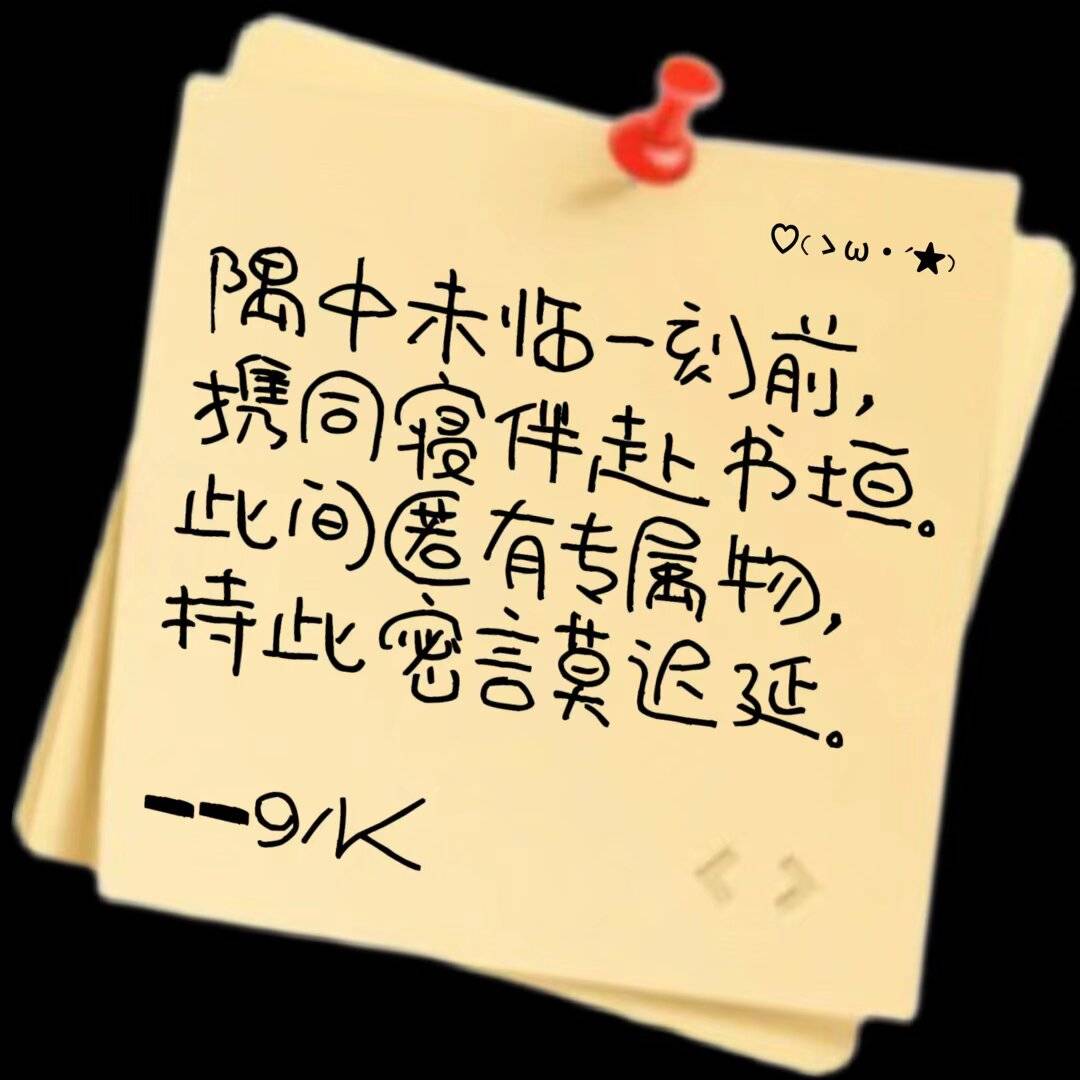 ♡(>ω・´★)
隅中未临一刻前，
携同寝伴赴书垣。
此间匿有专属物，
持此密言莫迟延。
--9/K